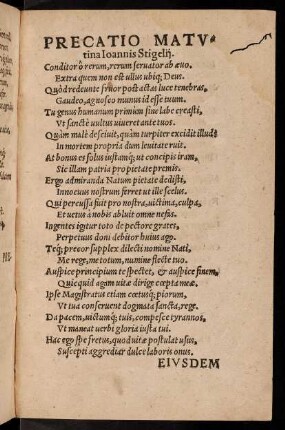 PRECATIO MATV-
tina Ioannis Stigelij.
Conditor ò rerum, rerum seruator ab æuo,
Extra quem non est ullus ubiq; Deus.
Quòd redeunte fruor post actas luce tenebras,
Gaudeo, agnosco munus id esse tuum.
Tu genus humanum primum sine labe creasti,
Vt sanctè uultus uiueret ante tuos.
Quàm malè desciuit, quàm turpiter excidit illud?
In mortem propria dum leuitate ruit.
At bonus es solus iustamq; ut concipis iram,
Sic illam patria pro pietate premis.
Ergo admiranda Natum pietate dedisti,
Innocuus nostrum ferret ut ille scelus.
Qui percussa fuit pro nostra, uictima, culpa,
Et uetus à nobis abluit omne nefas.
Ingentes igitur toto de pectore grates,
Perpetuus doni debitor huius ago.
Teq; precor supplex dilecti nomine Nati,
Me rege, me totum, numine flecte tuo.
Auspice principium te spectet, & auspice finem,
Quicquid agam uitæ dirige cœpta meæ.
Ipse Magistratus etiam cœtusq; piorum,
Vt tua conseruent dogmata sancta, rege.
Da pacem, uictumq; tuis, compesce tyrannos,
Vt maneat uerbi gloria iusta tui.
Hac ego spe fretus, quod uitæ postulat usus,
Suscepti aggrediar dulce laboris onus.
EIVSDEM